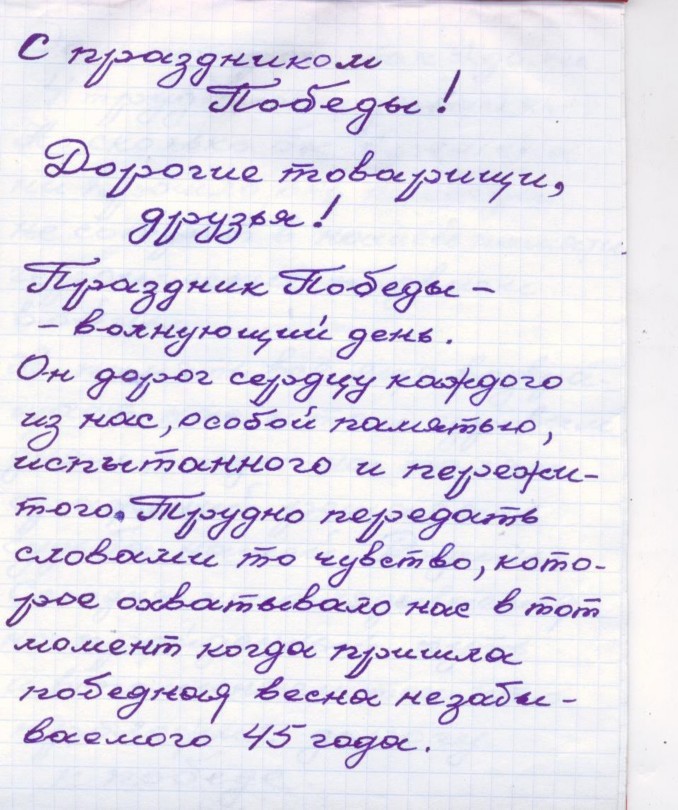 С праздником
Победы!
Дорогие товарищи,
друзья!
Праздник Победы –
– волнующий день.
Он дорог сердцу каждого
из нас, особой памятью,
испытанного и пережи-
того. Трудно передать
словами то чувство, кото-
рое охватывало нас в тот
момент когда пришла
победная весна незабы-
ваемого 45 года.